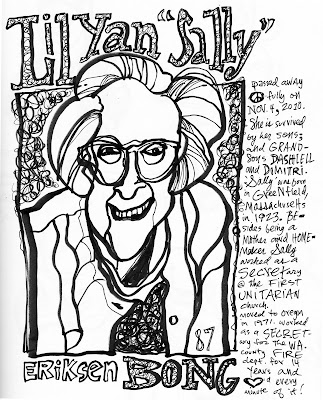 Lil Yan "Sally"
passed away
☮fully on
NOV. 4, 2010.
She is survived
by her sons;
2nd GRAND-
sons DASHIELL
and DIMITRI.
Sally was born
in GREENfield,
MASSachusetts
in 1923. BE-
sides being a
Mother and HOME-
MAKER Sally
worked as a
SECREtary
@ the FIRST
UNITARIAN
church.
moved to oregon
in 1971. worked
as a SECRET-
ary for the WA.
county FIRE
dept. for 14
years and
♡d every
minute of it!
87
ERIKSEN BONG